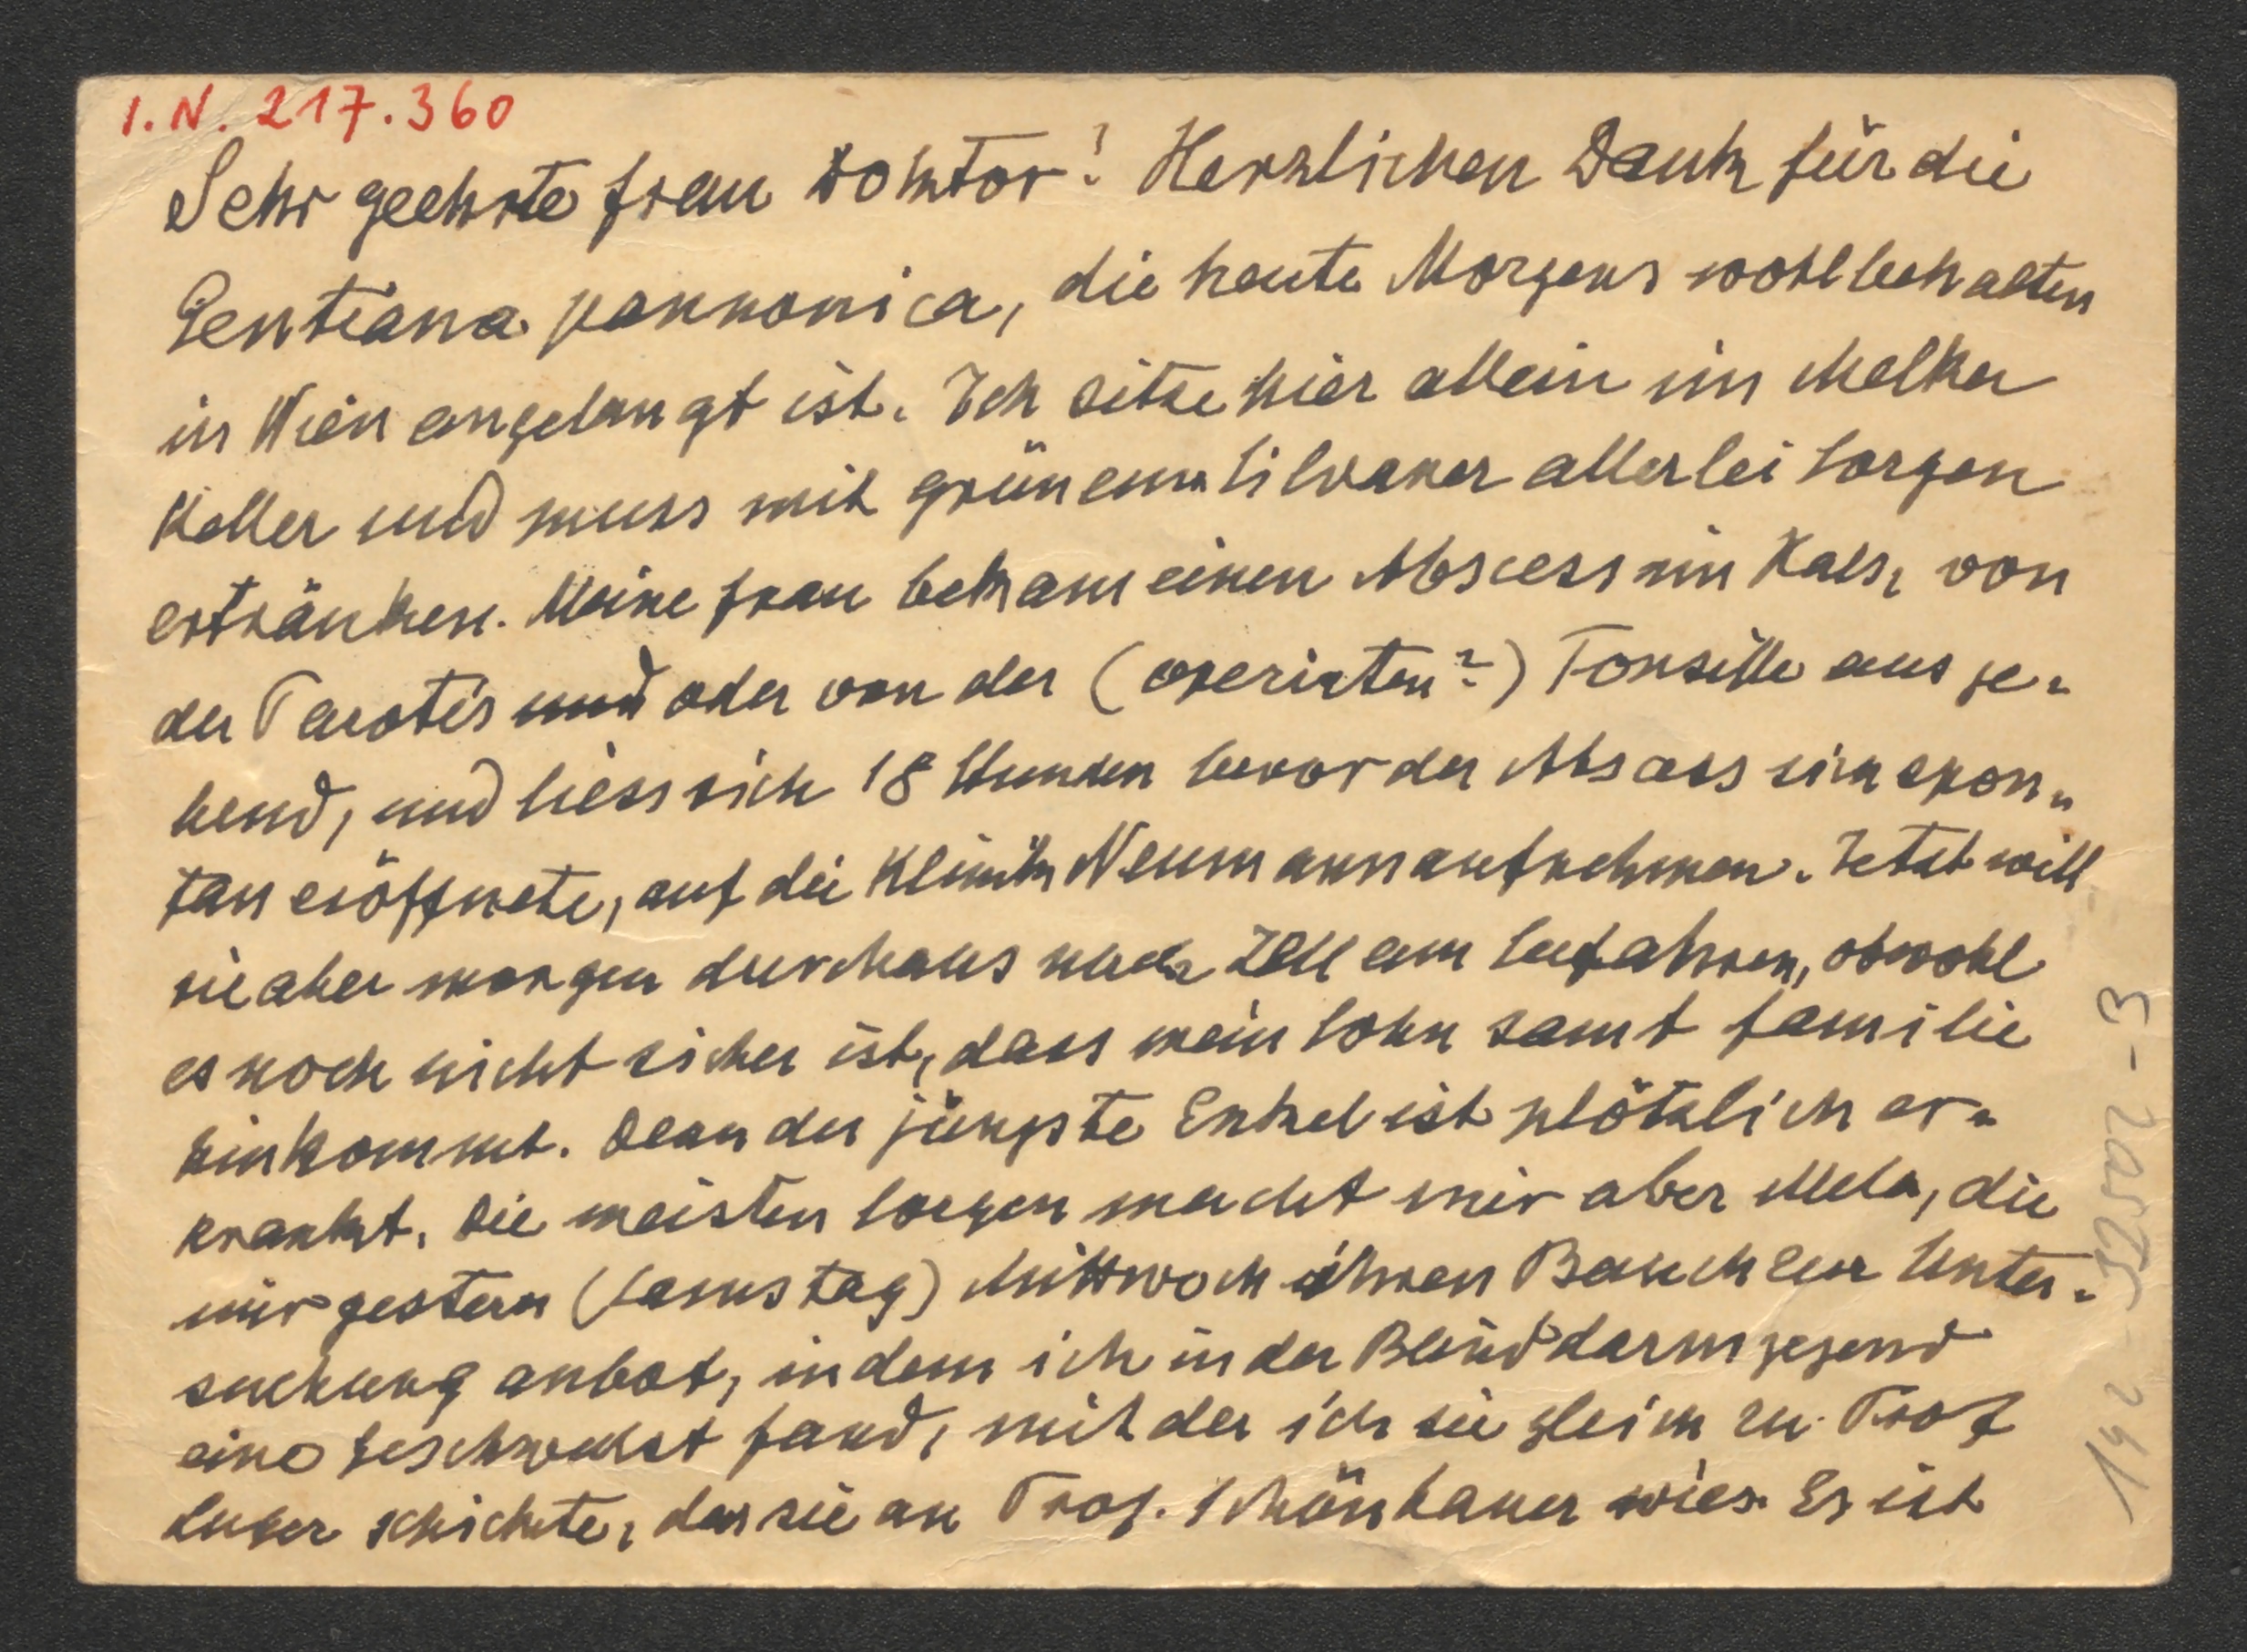 I.N. 217.360
Sehr geehrte Frau Doktor! Herzlichen Dank für die
Gentiana pannonica, die heute Morgens wohlbehalten
in Wien angelangt ist. Ich sitze hier allein im Melker
Keller und muss mit grünem Silvaner allerlei Sorgen
ertränken. Meine Frau bekam einen Abscess im Hals, von
der Parotis und oder von der (operirten?) Tonsille ausge-
hend, und liess sich 18 Stunden bevor der Abscess sich spon-
tan eröffnete, auf die Klinik Neumann aufnehmen. Jetzt will
sie aber morgen durchaus nach Zell am See fahren, obwohl
es noch nicht sicher ist, dass mein Sohn samt Familie
hinkommt. Denn der jüngste Enkel ist plötzlich er-
krankt. Die meisten Sorgen macht mir aber Mela, die
mir gestern (Samstag) Mittwoch ihren Bauch zur Unter-
suchung anbot, indem ich in der Blinddarmgegend
eine Geschwulst fand, mit der ich sie gleich zu Prof
Luger schickte, der sie an Prof. Schönbauer wies. Es ist
142-52502-3